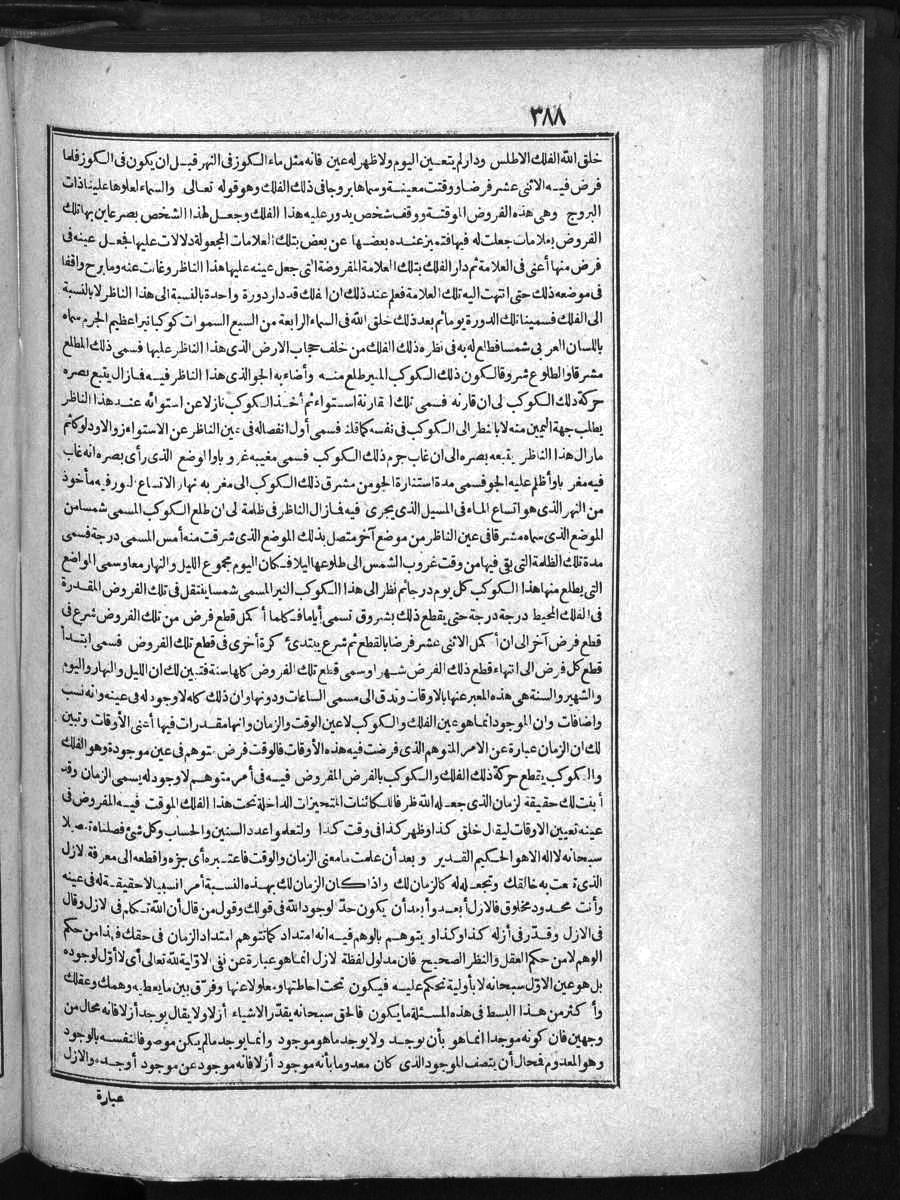 ٣٨٨
خلق الله الفلك الاطلس ودار لم يتعين اليوم ولا ظهر له عين فانه مثل ماء الكوز فى النهر قبل ان يكون فى الكوز فلما
فرض فيه الاثنى عشر فرضا ووقتت معينة وسماها بروجا فى ذلك الفلك وهو قوله تعالى والسماء لعلوها علينا ذات
البروج وهى هذه الفروض الموقتة ووقف شخص يدور عليه هذا الفلك وجعل لهذا الشخص بصر عاين بها تلك
الفروض بعلامات جعلت له فيها فتميز عنده بعضها عن بعض بتلك العلامات المجعولة دلالات عليها فجعل عينه فى
فرض منها أعنى فى العلامة ثم دار الفلك بتلك العلامة المفروضة التى جعل عينه عليها هذا الناظر وغابت عنه وما برح واقفا
فى موضعه ذلك حتى انتهت اليه تلك العلامة فعلم عند ذلك ان الفلك قد دار دورة واحدة بالنسبة الى هذا الناظر لا بالنسبة
الى الفلك فسمينا تلك الدورة يوما ثم بعد ذلك خلق الله فى السماء الرابعة من السبع السموات كوكبا نيرا عظيم الجرم سماه
باللسان العربى شمسا فطلع له به فى نظره ذلك الفلك من خلف حجاب الارض الذى هذا الناظر عليها فسمى ذلك المطلع
مشرقا والطلوع شروقا لكون ذلك الكوكب المنير طلع منه وأضاء به الجو الذى هذا الناظر فيه فمازال يتبع بصره
حركة ذلك الكوكب الى ان قارنه فسمى تلك المقارنة استواء ثم أخذ الكوكب نازلا عن استوائه عند هذا الناظر
يطلب جهة اليمين منه لا بالنظر الى الكوكب فى نفسه كما قلنا فسمى أول انفصاله فى عين الناظر عن الاستواء زوالا ودلوكا ثم
مازال هذا الناظر يتبعه بصره الى ان غاب جرم ذلك الكوكب فسمى مغيبه غروبا والموضع الذى رأى بصره انه غاب
فيه مغربا وأظلم عليه الجو فسمى مدة استنارة الجو من مشرق ذلك الكوكب الى مغربه نهارا لاتساع النور فيه مأخوذ
من النهر الذى هو اتساع الماء فى المسيل الذى يجرى فيه فمازال الناظر فى ظلمة الى ان طلع الكوكب المسمى شمسا من
الموضع الذى سماه مشرقا فى عين الناظر من موضع آخر متصل بذلك الموضع الذى شرقت منه أمس المسمى درجة فسمى
مدة تلك الظلمة التى بقى فيها من وقت غروب الشمس الى طلوعها ليلا فكان اليوم مجموع الليل والنهار معا وسمى المواضع
التى يطلع منها هذا الكوكب كل يوم درجا ثم نظر الى هذا الكوكب النير المسمى شمسا ينتقل فى تلك الفروض المقدرة
فى الفلك المحيط درجة درجة حتى يقطع ذلك بشروق تسمى أياما فكلما أكمل قطع فرض من تلك الفروض شرع فى
قطع فرض آخر الى ان أكمل الاثنى عشر فرضا بالقطع ثم شرع يبتدئ كرة أخرى فى قطع تلك الفروض فسمى ابتدأ
قطع كل فرض الى انتهاء قطع ذلك الفرض شهرا وسمى قطع تلك الفروض كلها سنة فتبين لك ان الليل والنهار واليوم
والشهر والسنة هى هذه المعبر عنها بالاوقات وتدق الى مسمى الساعات ودونها وان ذلك كله لا وجود له فى عينه وانه نسب
واضافات وان الموجود انما هو عين الفلك والكوكب لا عين الوقت والزمان وانها مقدرات فيها أعنى الأوقات وتبين
لك ان الزمان عبارة عن الامر المتوهم الذى فرضت فيه هذه الأوقات فالوقت فرض متوهم فى عين موجودة وهو الفلك
والكوكب يقطع حركة ذلك الفلك والكوكب بالفرض المفروض فيه فى أمر متوهم لا وجود له يسمى الزمان وقد
أبنت لك حقيقة الزمان الذى جعله الله ظرفا للكائنات المتحيزات الداخلة تحت هذا الفلك الموقت فيه المفروض فى
عينه تعيين الاوقات ليقال خلق كذا وظهر كذا فى وقت كذا ولتعلموا عدد السنين والحساب وكل شئ فصلناه تفصيلا
سبحانه لا اله الا هو الحكيم القدير وبعد أن علمت ما معنى الزمان والوقت فاعتبره أى جزه واقطعه الى معرفة الازل
الذى تنعت به خالقك وتجعله له كالزمان لك واذا كان الزمان لك بهذه النسبة أمرا نسبيا لا حقيقة له فى عينه
وأنت محدود مخلوق فالازل أبعد وأبعد أن يكون حدّا لوجود الله فى قولك وقول من قال أن الله تكلم فى الازل وقال
فى الازل وقدّر فى أزله كذا وكذا ويتوهم بالوهم فيه انه امتداد كما تتوهم امتداد الزمان فى حقك فهذا من حكم
الوهم لا من حكم العقل والنظر الصحيح فان مدلول لفظة الازل انما هو عبارة عن نفى الاوّلية لله تعالى أى لا أوّل لوجوده
بل هو عين الاوّل سبحانه لا بأولية تحكم عليه فيكون تحت احاطتها ومعلولا عنها وفرّق بين ما يعطيه وهمك وعقلك
وأكثر من هذا البسط فى هذه المسئلة ما يكون فالحق سبحانه يقدّر الاشياء أزلا ولا يقال يوجد أزلا فانه محال من
وجهين فان كونه موجدا انما هو بأن يوجد ولا يوجد ما هو موجود وانما يوجد مالم يكن موصوفا لنفسه بالوجود
وهو المعدوم فمحال أن يتصف الموجود الذى كان معدوما بأنه موجود أزلا فانه موجود عن موجود أوجده والازل
عبارة